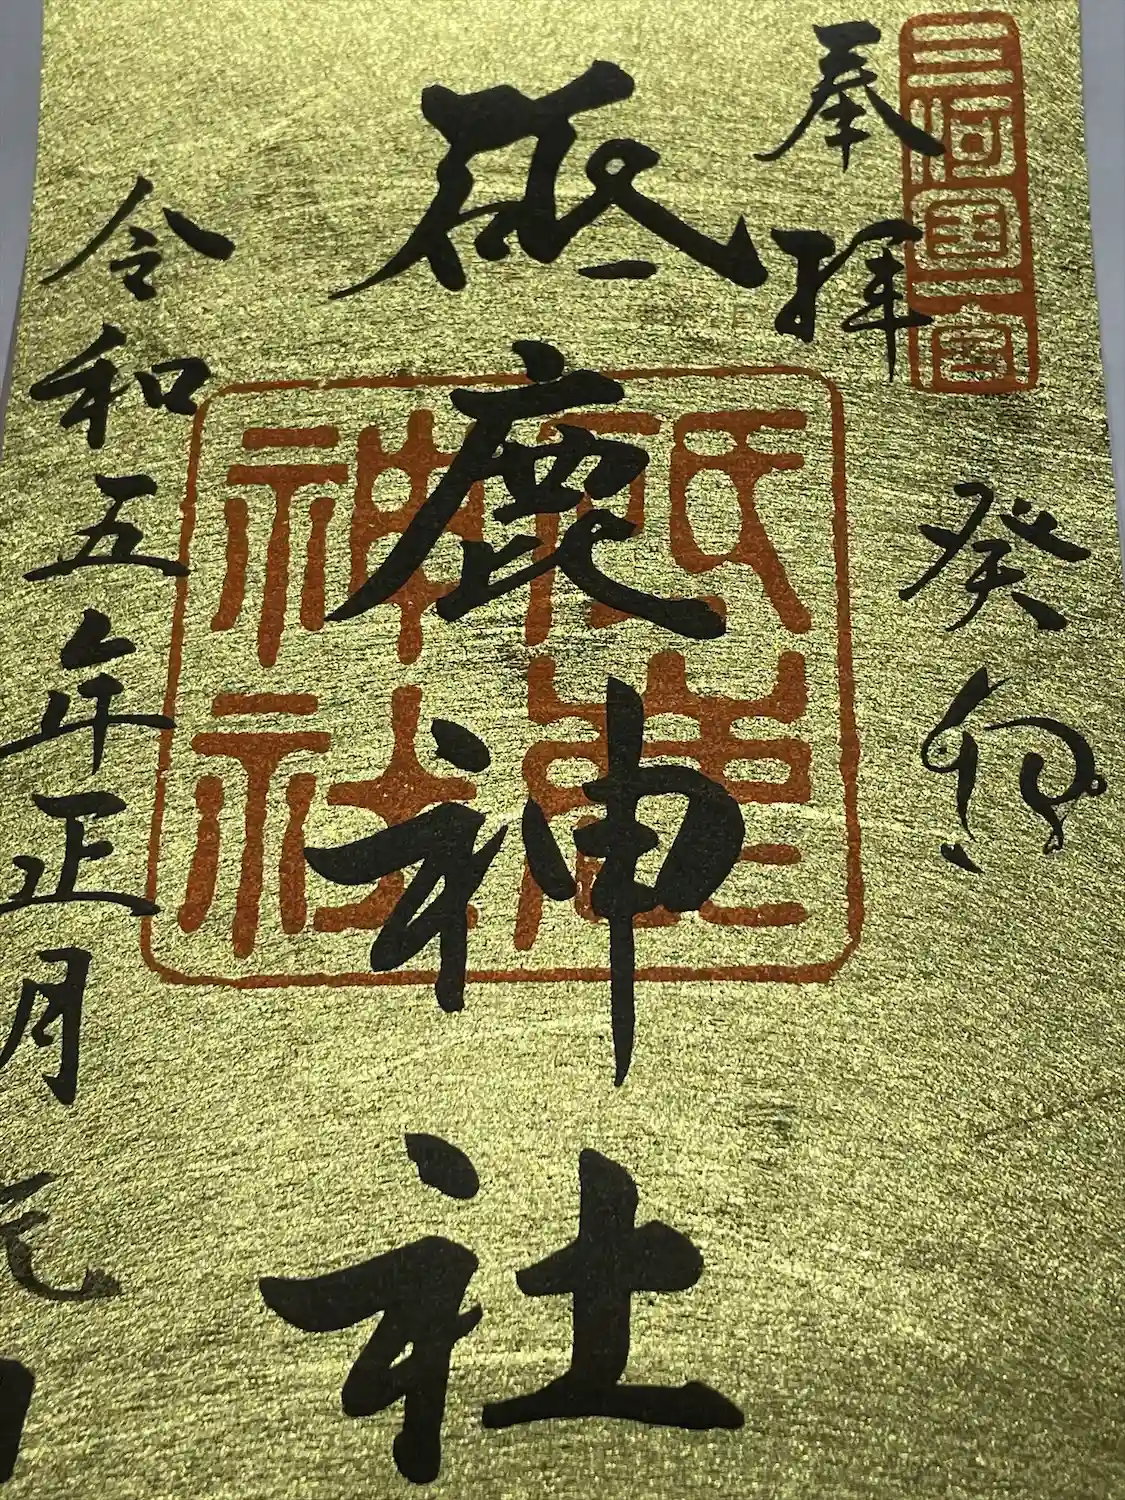 三河國一宮
奉拝
癸卯
砥鹿神社
砥鹿神社
令和五年正月元